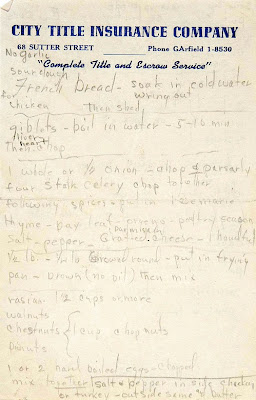 CITY TITLE INSURANCE COMPANY
68 SUTTER STREET Phone GArfield 1-8530
"Complete Title and Escrow Service"
No garlic
sourdough
French Bread - soak in cold water
for wring out
chicken then shed
giblets - boil in water - 5-10 min
liver
heart
then chop
1 whole or 1/2 onion - chop & parsely
four Stalk celery chop together
following spices - put in rosemarie
thyme - bay leaf - - poltry season
parmisian
Salt - pepper - Grated cheese - 1 handful
1/4 lb - 1/2 lb Ground round - put in frying
pan - brown (no oil) then mix
rasins 1/2 cups or more
walnuts
chestnuts 1 cup chop nuts
Pinuts
1 or 2 hard boiled eggs - chopped
mix together (salt & pepper in side chicken
or turkey - outside same & butter